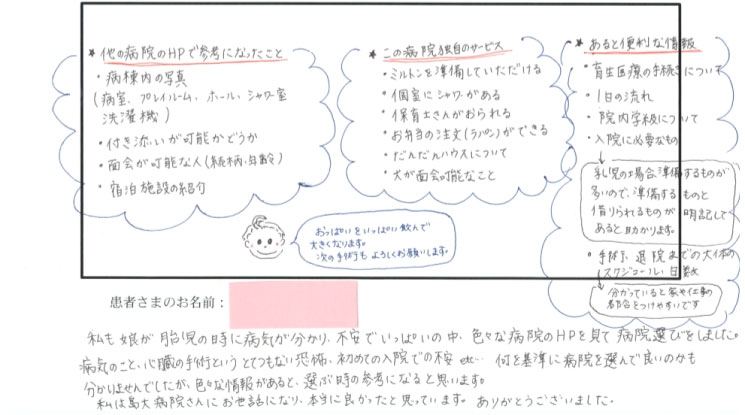 ★ 他の病院のHPで参考になったこと
・病棟内の写真
(病室、プレイルーム、ホール、シャワー室
洗濯機)
・付き添いが可能かどうか
・面会が可能な人(続柄・年齢)
・宿泊施設の紹介
★ この病院独自のサービス
・ミルトンを準備していただける
・個室にシャワーがある
・保育士さんがおられる
・お弁当の注文(ラパン)ができる
・だんだんハウスについて
・犬が面会可能なこと
★ あると便利な情報
・育生医療の手続きについて
・1日の流れ
・院内学級について
・入院に必要なもの
乳児の場合準備するものが
多いので、準備するものと
借りられるものが明記して
あると助かります。
・手術、退院までの大体の
スケジュール・日数
分かっていると家や仕事の
都合をつけやすいです
おっぱいをいっぱい飲んで
大きくなります。
次の手術もよろしくお願いします。
患者さまのお名前:
私も娘が胎児の時に病気が分かり、不安でいっぱいの中、色々な病院のHPを見て病院選びをしました。
病気のこと、心臓の手術というとてつもない恐怖、初めての入院での不安 etc… 何を基準に病院を選んで良いのかも
分かりませんでしたが、色々な情報があると、選ぶ時の参考になると思います。
私は島大病院さんにお世話になり、本当に良かったと思っています。ありがとうございました。